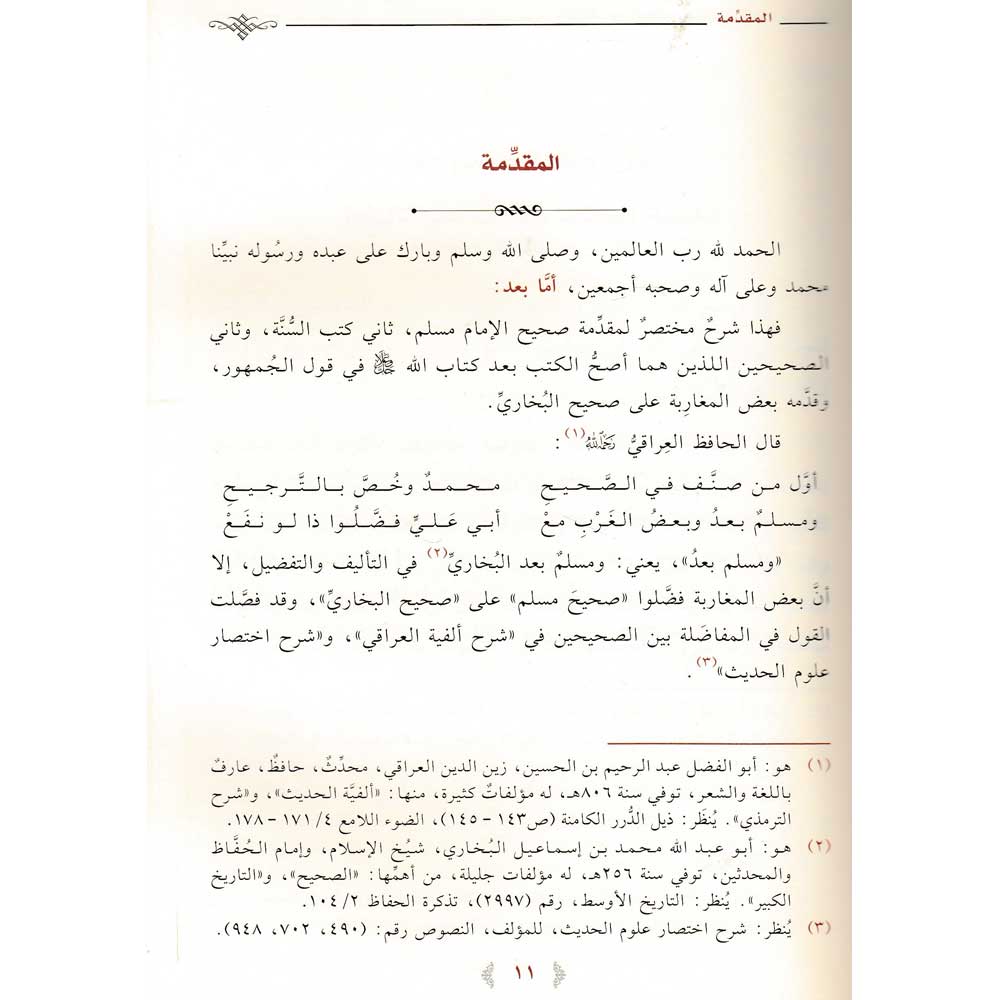 المقدِّمة
المقدِّمة
الحمد لله رب العالمين، وصلى الله وسلم وبارك على عبده ورسُوله نبيِّنا
محمد وعلى آله وصحبه أجمعين، أمَّا بعد:
فهذا شرحٌ مختصرٌ لمقدِّمة صحيح الإمام مسلم، ثاني كتب السُّنَّة، وثاني
الصحيحين اللذين هما أصحُّ الكتب بعد كتاب الله ﷻ في قول الجُمهور،
وقدَّمه بعض المغارِبة على صحيح البُخاريِّ.
قال الحافظ العِراقيُّ رَحِمَهُ اللهُ(١):
أوَّل من صنَّف في الصَّحيحِ محمدٌ وخُصَّ بالتَّرجيحِ
ومسلمٌ بعدُ وبعضُ الغَرْبِ معْ أبي عَليٍّ فضَّلُوا ذا لو نفَعْ
«ومسلم بعدُ»، يعني: ومسلمٌ بعد البُخاريِّ(٢) في التأليف والتفضيل، إلا
أنَّ بعض المغاربة فضَّلوا «صحيحَ مسلم» على «صحيح البخاريِّ»، وقد فصَّلت
القول في المفاضَلة بين الصحيحين في «شرح ألفية العراقي»، و«شرح اختصار
علوم الحديث»(٣).
(١) هو: أبو الفضل عبد الرحيم بن الحسين، زين الدين العراقي، محدِّثٌ، حافظٌ، عارفٌ
باللغة والشعر، توفي سنة ٨٠٦هـ، له مؤلفاتٌ كثيرة، منها: «ألفيَّة الحديث»، و«شرح
الترمذي». يُنظَر: ذيل الدُّرر الكامنة (ص١٤٣ - ١٤٥)، الضوء اللامع ٤/ ١٧١ - ١٧٨.
(٢) هو: أبو عبد الله محمد بن إسماعيل البُخاري، شيُخ الإسلام، وإمام الحُفَّاظ
والمحدثين، توفي سنة ٢٥٦هـ، له مؤلفات جليلة، من أهمِّها: «الصحيح»، و«التاريخ
الكبير». يُنظر: التاريخ الأوسط، رقم (٢٩٩٧)، تذكرة الحفاظ ٢/ ١٠٤.
(٣) يُنظر: شرح اختصار علوم الحديث، للمؤلف، النصوص رقم: (٤٩٠، ٧٠٢، ٩٤٨).
١١